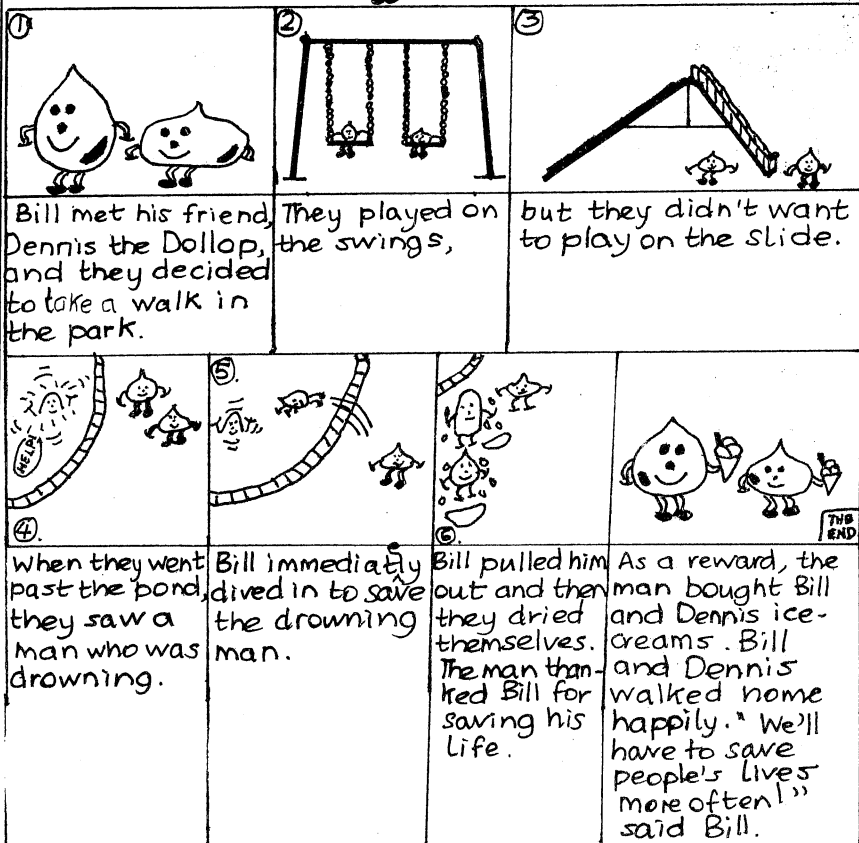 1
2
3
Bill met his friend,
Dennis the Dollop,
and they decided
to take a walk in
the park.
They played on
the swings,
but they didn't want
to play on the slide.
HELP!
4.
5.
6.
THE
END
When they went
past the pond,
they saw a
man who was
drowning.
Bill immediatly
dived in to save
the drowning
man.
Bill pulled him
out and then
they dried
themselves.
The man than-
ked Bill for
saving his
life.
As a reward, the
man bought Bill
and Dennis ice-
creams. Bill
and Dennis
walked home
happily." We'll
have to save
people's lives
more often!"
said Bill.